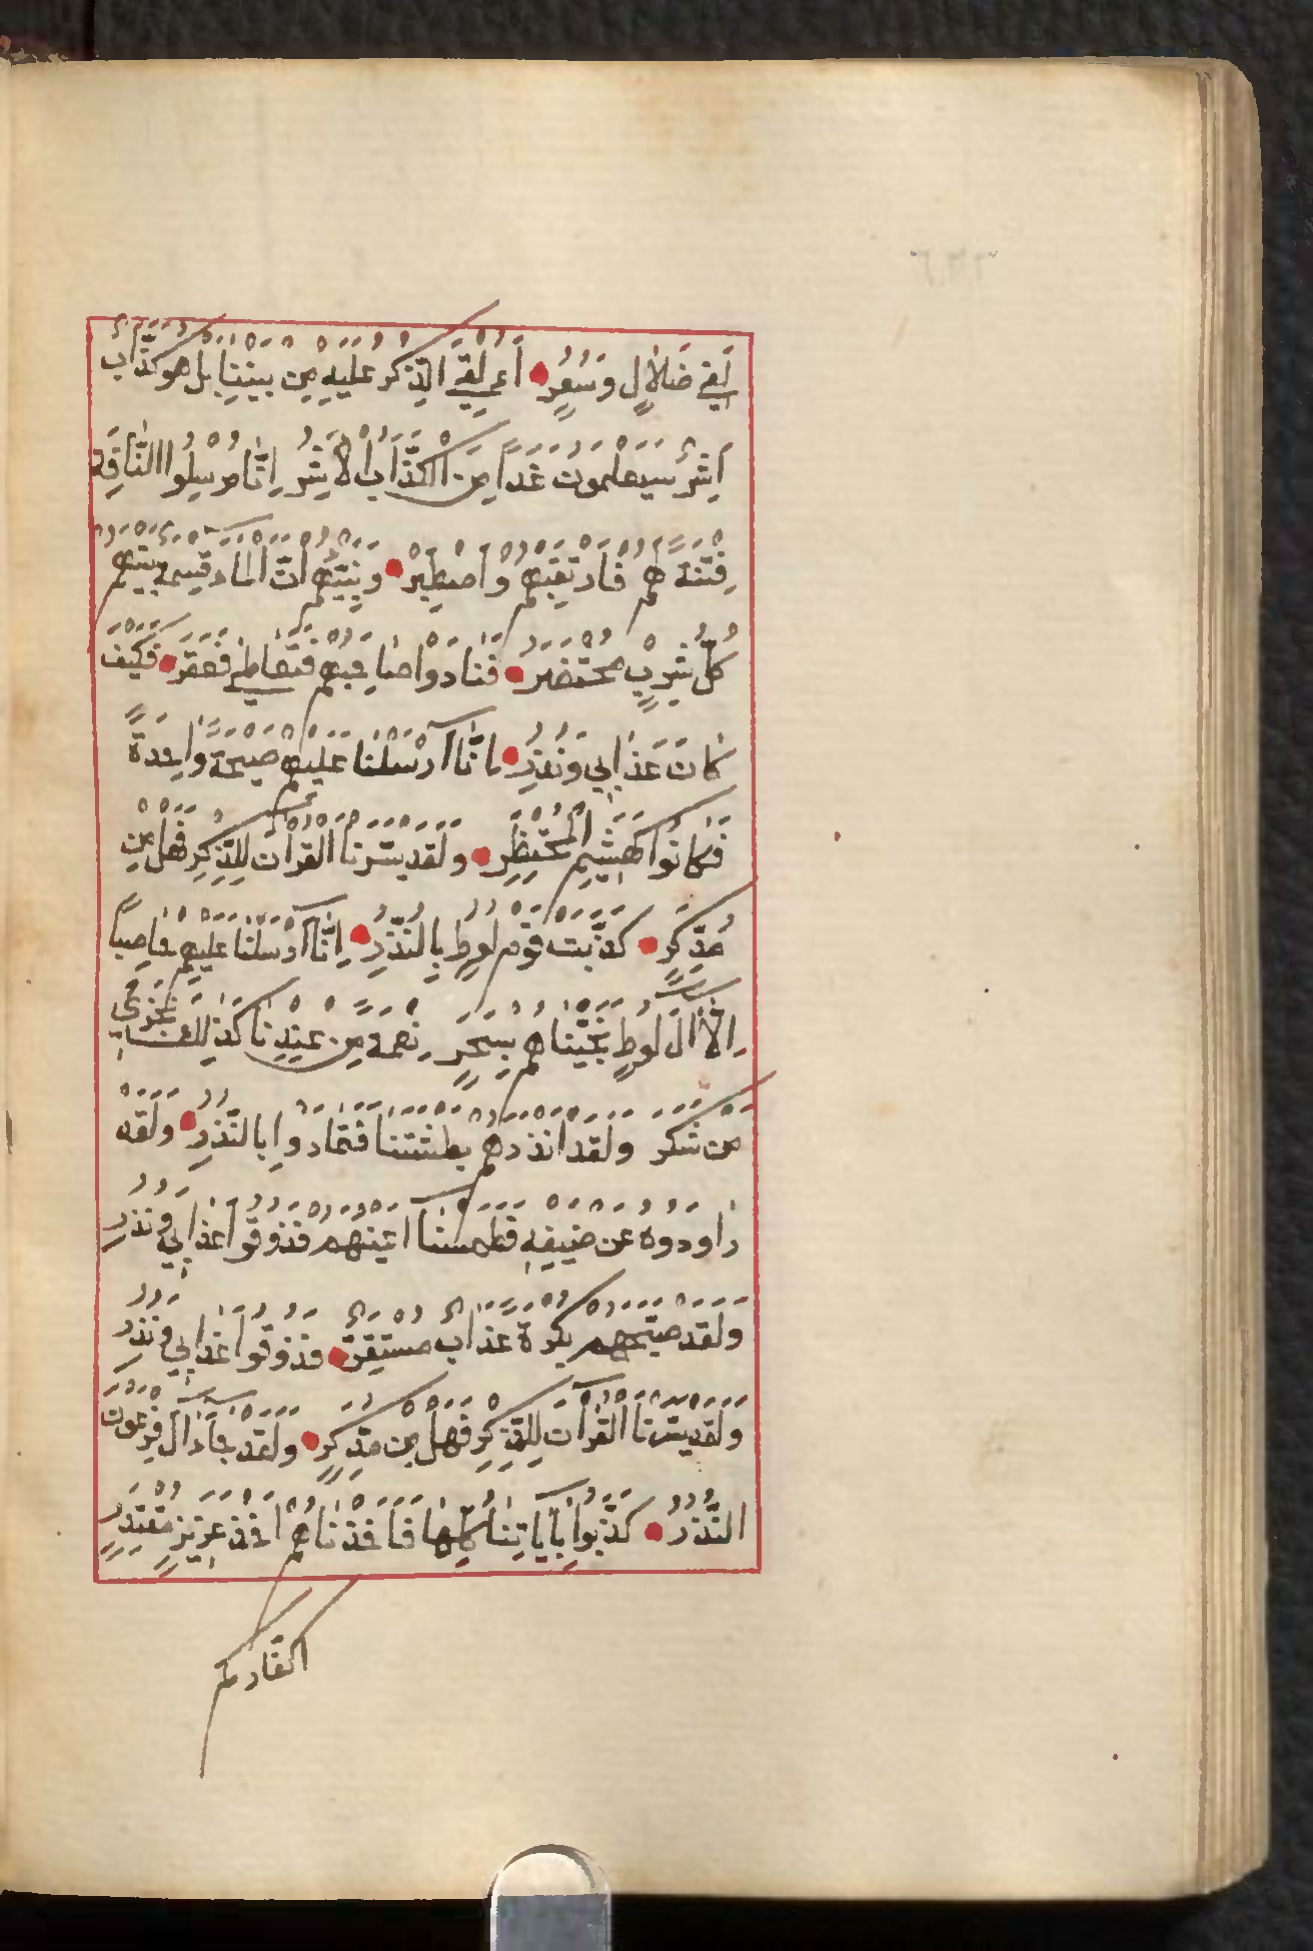 لَفِي ضَلَالٍ وَسُعُرٍ أَءُلْقِيَ الذِّكْرُ عَلَيْهِ مِن بَيْنِنَا بَلْ هُوَ كَذَّابٌ
أَشِرٌ سَيَعْلَمُونَ غَدًا مَّنِ الْكَذَّابُ الْأَشِرُ إِنَّا مُرْسِلُوا النَّاقَةِ
فِتْنَةً لَّهُمْ فَارْتَقِبْهُمْ وَاصْطَبِرْ وَنَبِّئْهُمْ أَنَّ الْمَاءَ قِسْمَةٌ بَيْنَهُمْ
كُلُّ شِرْبٍ مُّحْتَضَرٌ فَنَادَوْا صَاحِبَهُمْ فَتَعَاطَى فَعَقَرَ فَكَيْفَ
كَانَ عَذَابِي وَنُذُرِ إِنَّا أَرْسَلْنَا عَلَيْهِمْ صَيْحَةً وَاحِدَةً
فَكَانُوا كَهَشِيمِ الْمُحْتَظِرِ وَلَقَدْ يَسَّرْنَا الْقُرْآنَ لِلذِّكْرِ فَهَلْ مِن
مُّدَّكِرٍ كَذَّبَتْ قَوْمُ لُوطٍ بِالنُّذُرِ إِنَّا أَرْسَلْنَا عَلَيْهِمْ حَاصِبًا
إِلَّا آلَ لُوطٍ نَّجَّيْنَاهُم بِسَحَرٍ نِعْمَةً مِّنْ عِندِنَا كَذَلِكَ نَجْزِي
مَن شَكَرَ وَلَقَدْ أَنذَرَهُم بَطْشَتَنَا فَتَمَارَوْا بِالنُّذُرِ وَلَقَدْ
رَاوَدُوهُ عَن ضَيْفِهِ فَطَمَسْنَا أَعْيُنَهُمْ فَذُوقُوا عَذَابِي وَنُذُرِ
وَلَقَدْ صَبَّحَهُم بُكْرَةً عَذَابٌ مُّسْتَقِرٌّ فَذُوقُوا عَذَابِي وَنُذُرِ
وَلَقَدْ يَسَّرْنَا الْقُرْآنَ لِلذِّكْرِ فَهَلْ مِن مُّدَّكِرٍ وَلَقَدْ جَاءَ آلَ فِرْعَوْنَ
النُّذُرُ كَذَّبُوا بِآيَاتِنَا كُلِّهَا فَأَخَذْنَاهُمْ أَخْذَ عَزِيزٍ مُّقْتَدِرٍ
أكفاركم